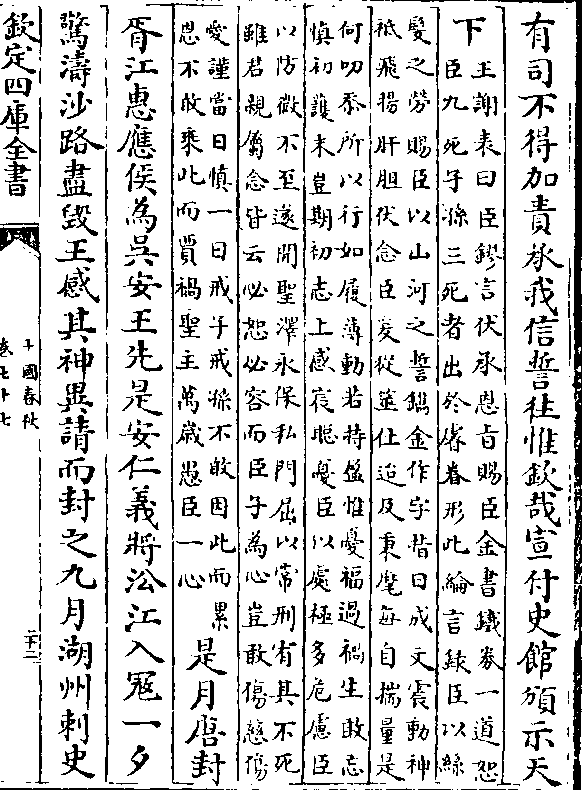 有司不得加責承我信誓往惟欽哉宣付史館頒示天
下
王謝表曰臣鏐言伏承恩旨賜臣金書鐵券一道恕
臣九死子孫三死者出於睿眷形此綸言錄臣以絲
髮之勞賜臣以山河之誓鐫金作字指日成文震動神
祇飛揚肝胆伏念臣爰從筮仕迨及秉麾每自揣量是
何叨忝所以行如履薄動若持盈惟憂福過禍生敢忘
慎初護末豈期初志上感宸聰憂臣以處極多危慮臣
以防微不至遂開聖澤永保私門屈以常刑有其不死
雖君親屬念皆云必恕必容而臣子為心豈敢傷慈傷
愛謹當日慎一日戒子戒孫不敢因此而累
恩不敢乘此而賈禍聖主萬歲愚臣一心
是月唐封
胥江惠應侯為吳安王先是安仁義將㳂江入冦一夕
驚濤沙路盡毀王感其神異請而封之九月湖州刺史
欽定四庫全書
十國春秋
卷七十七
二十二